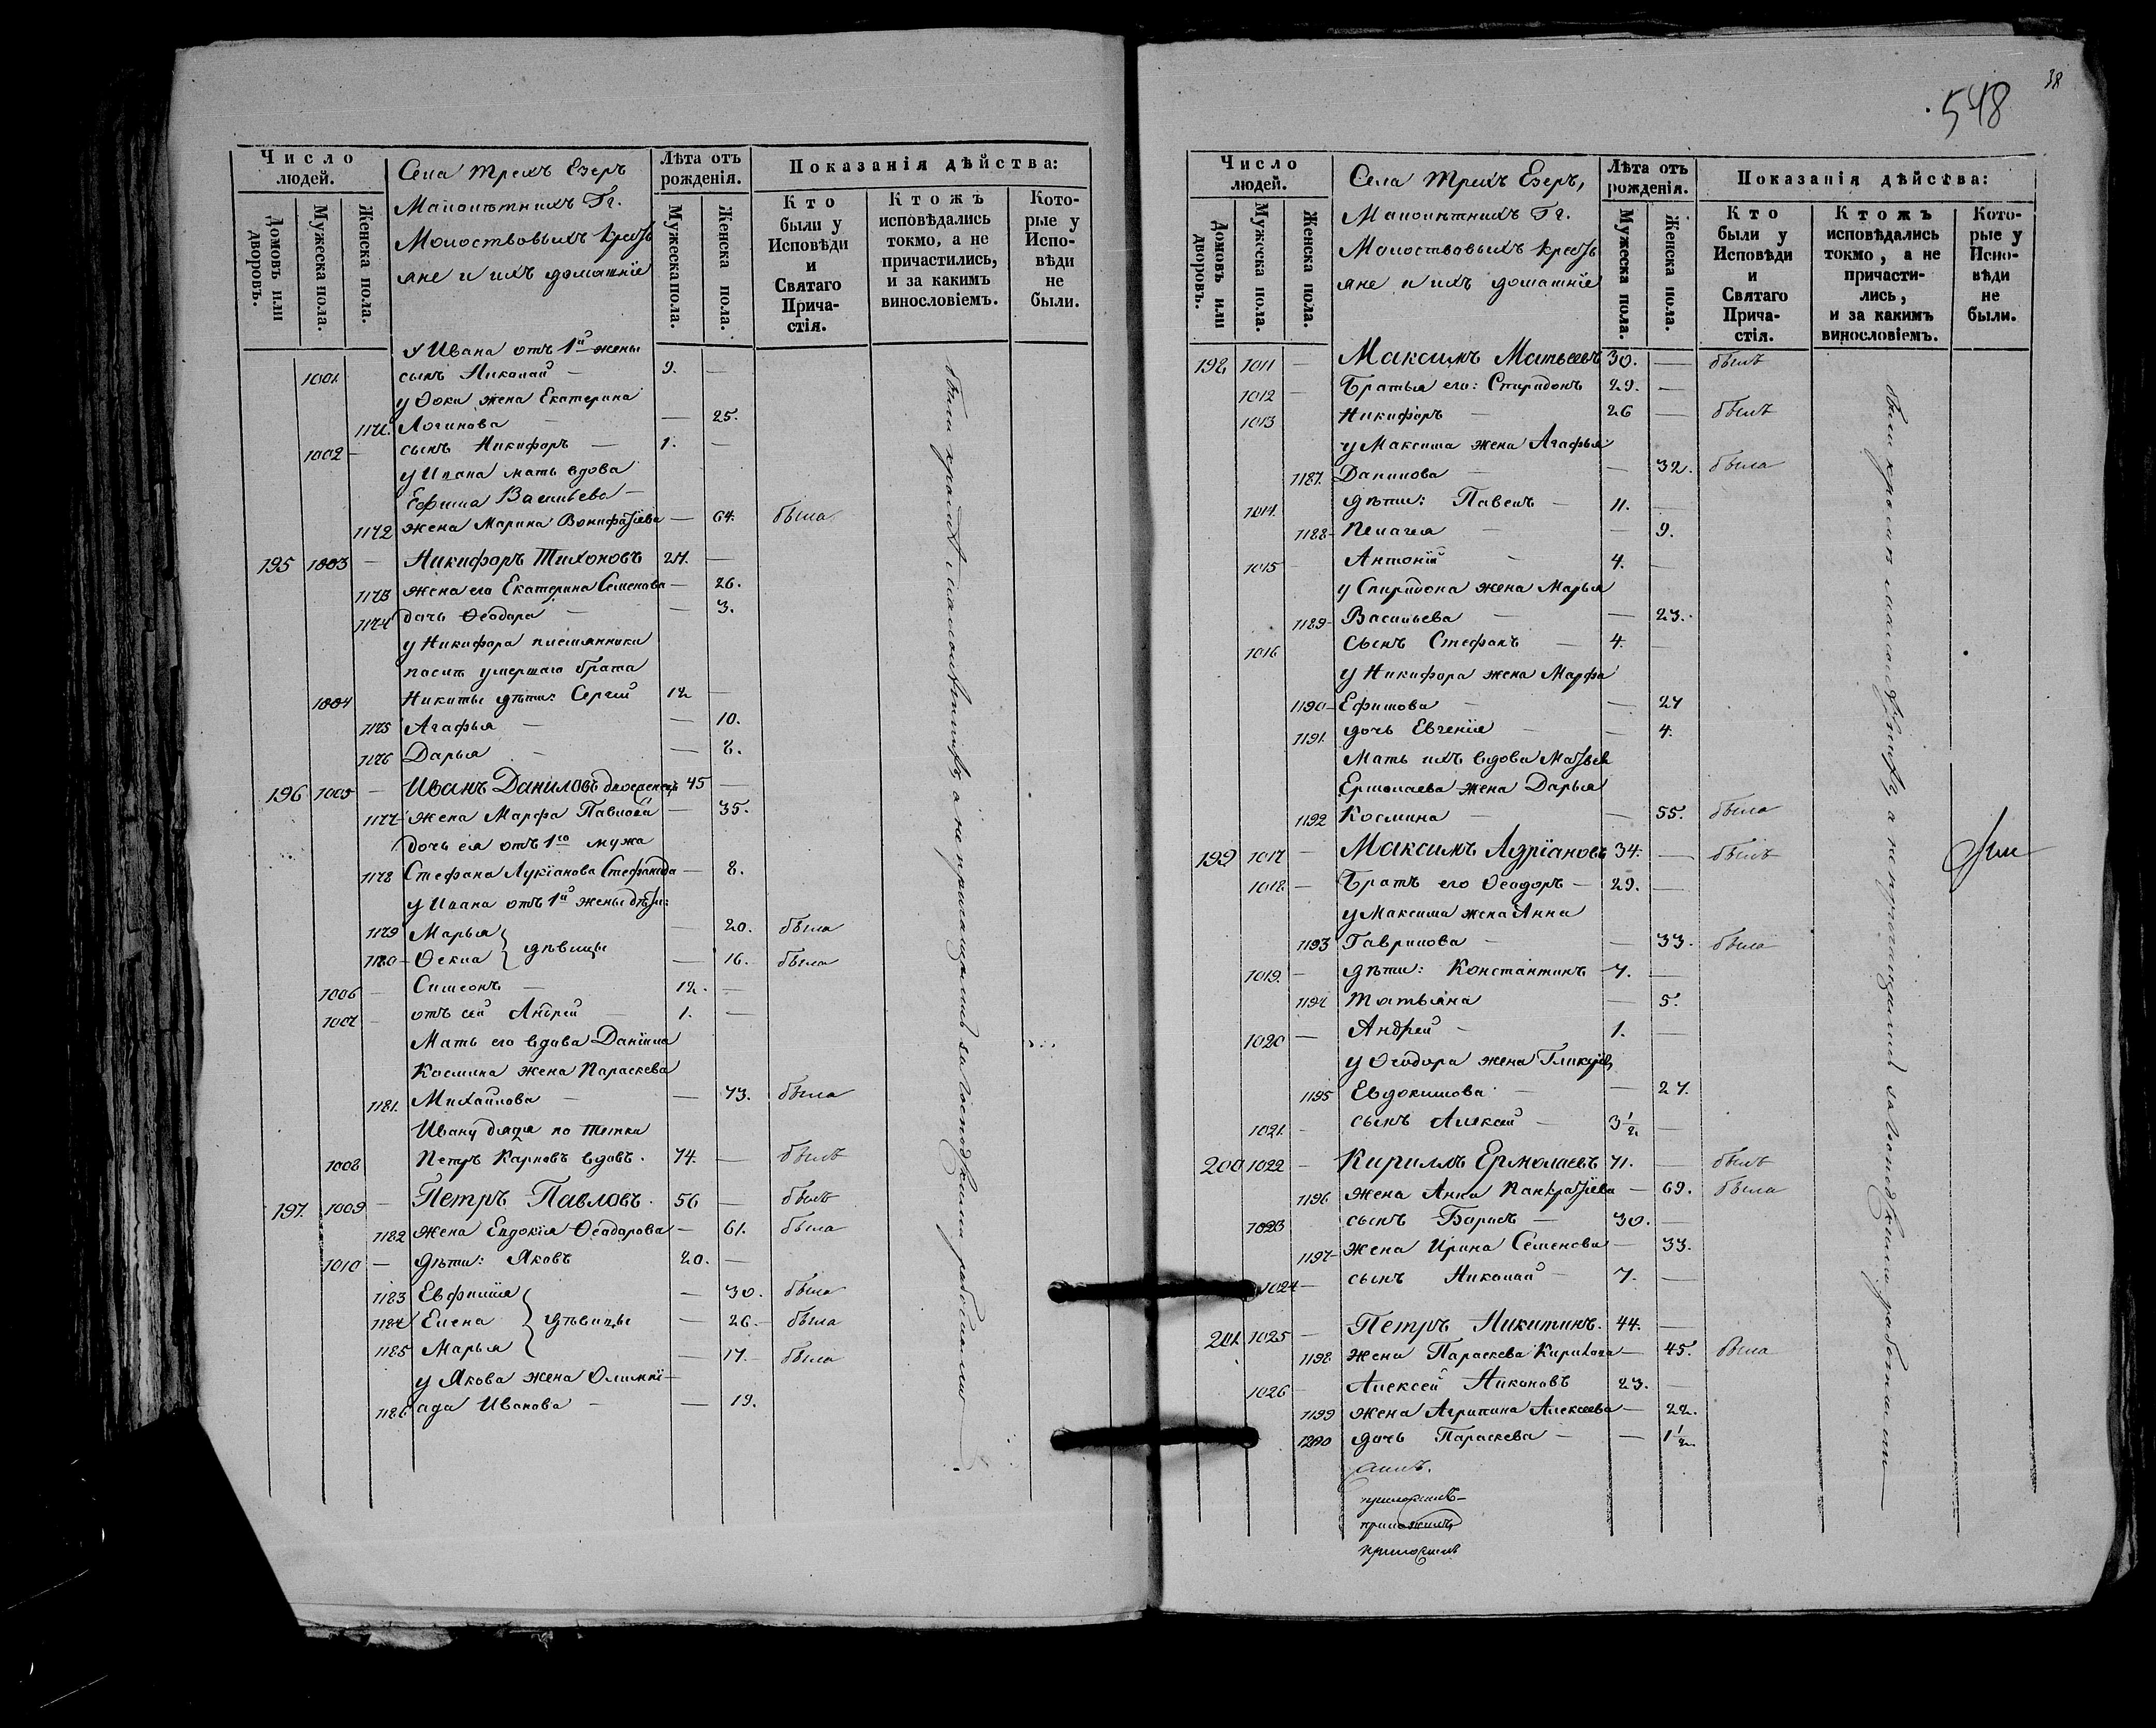 Число людей.
Домовъ или дворовъ.
Мужеска пола.
Женска пола.
Села Трехъ Езеръ
Малолѣтнихъ Гг.
Молоствовыхъ кресть
яне и ихъ домашніе
Лѣта отъ рожденія.
Мужеска пола.
Женска пола.
Показанія дѣйства:
Кто были у Исповѣди и Святаго Прича-стія.
Ктожъ исповѣдались токмо, а не причастились, и за какимъ винословіемъ.
Кото-рые у Испо-вѣди не были.
У Ивана отъ 1й жены
1001. сынъ Николай — 9. —
у Фоки жена Екатерина
1171. Логинова — — 25.
1002 — сынъ Никифоръ — 1. —
у Ивана мать вдова
Ефима Васильева —
1172 жена Марина Вонифатіева — 64. была
195 1003 — Никифоръ Тихоновъ 27. —
1173 жена его Екатерина Семенова — 26.
1174 дочь Ѳеодора — — 3.
у Никифора племянники
послѣ умершаго брата
1004 Никиты дѣти: Сергій 12 —
1175 Агафья — — 10.
1176 Дарья — — 8.
196 1005 — Иванъ Даниловъ двоеженецъ 45 —
1177 жена Марфа Павлова — 35.
дочь ея отъ 1го мужа
1178 Стефана Лукіанова Стефанида — 8.
у Ивана отъ 1й жены дѣти:
1179 Марья — 20. была
1180 — Ѳекла } дѣвицы — 16. была
1006 — Симеонъ — 12. —
1007 — отъ сей Андрей — 1. —
Мать его вдова Даніила
Космина жена Параскева
1181. Михайлова — — 73. была
Ивану дядя по тетки
1008 Петръ Карповъ вдовъ. 74. — былъ
197. 1009 — Петръ Павловъ. 56 — былъ
1182 жена Евдокія Ѳеодорова — 61. была
1010 — дѣти: Яковъ 20. —
1183 Евфимія — 30. была
1184 Елена } дѣвицы — 26. — была
1185 Марья — 17. — была
у Якова жена Олимпі-
1186 ада Иванова — — 19.
а не причащались за господскими работами —
38
548
Число людей.
Домовъ или дворовъ.
Мужеска пола.
Женска пола.
Села Трехъ Езеръ,
Малолѣтнихъ Гг.
Молоствовыхъ кресть
яне и ихъ домашніе
Лѣта отъ рожденія.
Мужеска пола.
Женска пола.
Показанія дѣйства:
Кто были у Исповѣди и Святаго Прича-стія.
Ктожъ исповѣдались токмо, а не причасти-лись, и за какимъ винословіемъ.
Кото-рые у Испо-вѣди не были.
198 1011 — Максимъ Матвеевъ 30. — былъ
1012 — Братья его: Спиридонъ 29. —
1013 Никифоръ — 26 — былъ
у Максима жена Агафья
1187. Данилова — — 32. была
1014. дѣти: Павелъ — 11. —
1188 — Пелагея — — 9.
1015 — Антоній — 4. —
у Спиридона жена Марья
1189 — Васильева — — 23.
1016 Сынъ Стефанъ — 4. —
у Никифора жена Марфа
1190 — Ефимова — — 27
1191. дочь Евгенія — — 4.
Мать ихъ вдова Матвея
Ермолаева жена Дарья
1192 Космина — — 55. была
199 1017 — Максимъ Адріановъ 34. — былъ
1018. — Братъ его Ѳеодоръ — 29. —
у Максима жена Анна
1193 Гаврилова — — 33. была
1019. — дѣти: Константинъ — 7. —
1194 Татьяна — 5.
1020 — Андрей — 1. —
у Ѳеодора жена
1195 Евдокимова — — 27.
1021. — сынъ Алексей — 3½ —
200 1022 — Кириллъ Ермолаевъ 71. — былъ
1196 жена Анна Панкратіева — 69. была
1023 сынъ Борисъ — 30. —
1197 — жена Ирина Семенова — 33.
1024 — сынъ Николай — 7. —
201. 1025 — Петръ Никитинъ. 44. —
1198 жена Параскева — 45. была
1026 — Алексей Никоновъ 23. —
1199 жена Агрипина Алексеева — 22.
1200 дочь Параскева — — 1½
а не причащались за господскими работами —